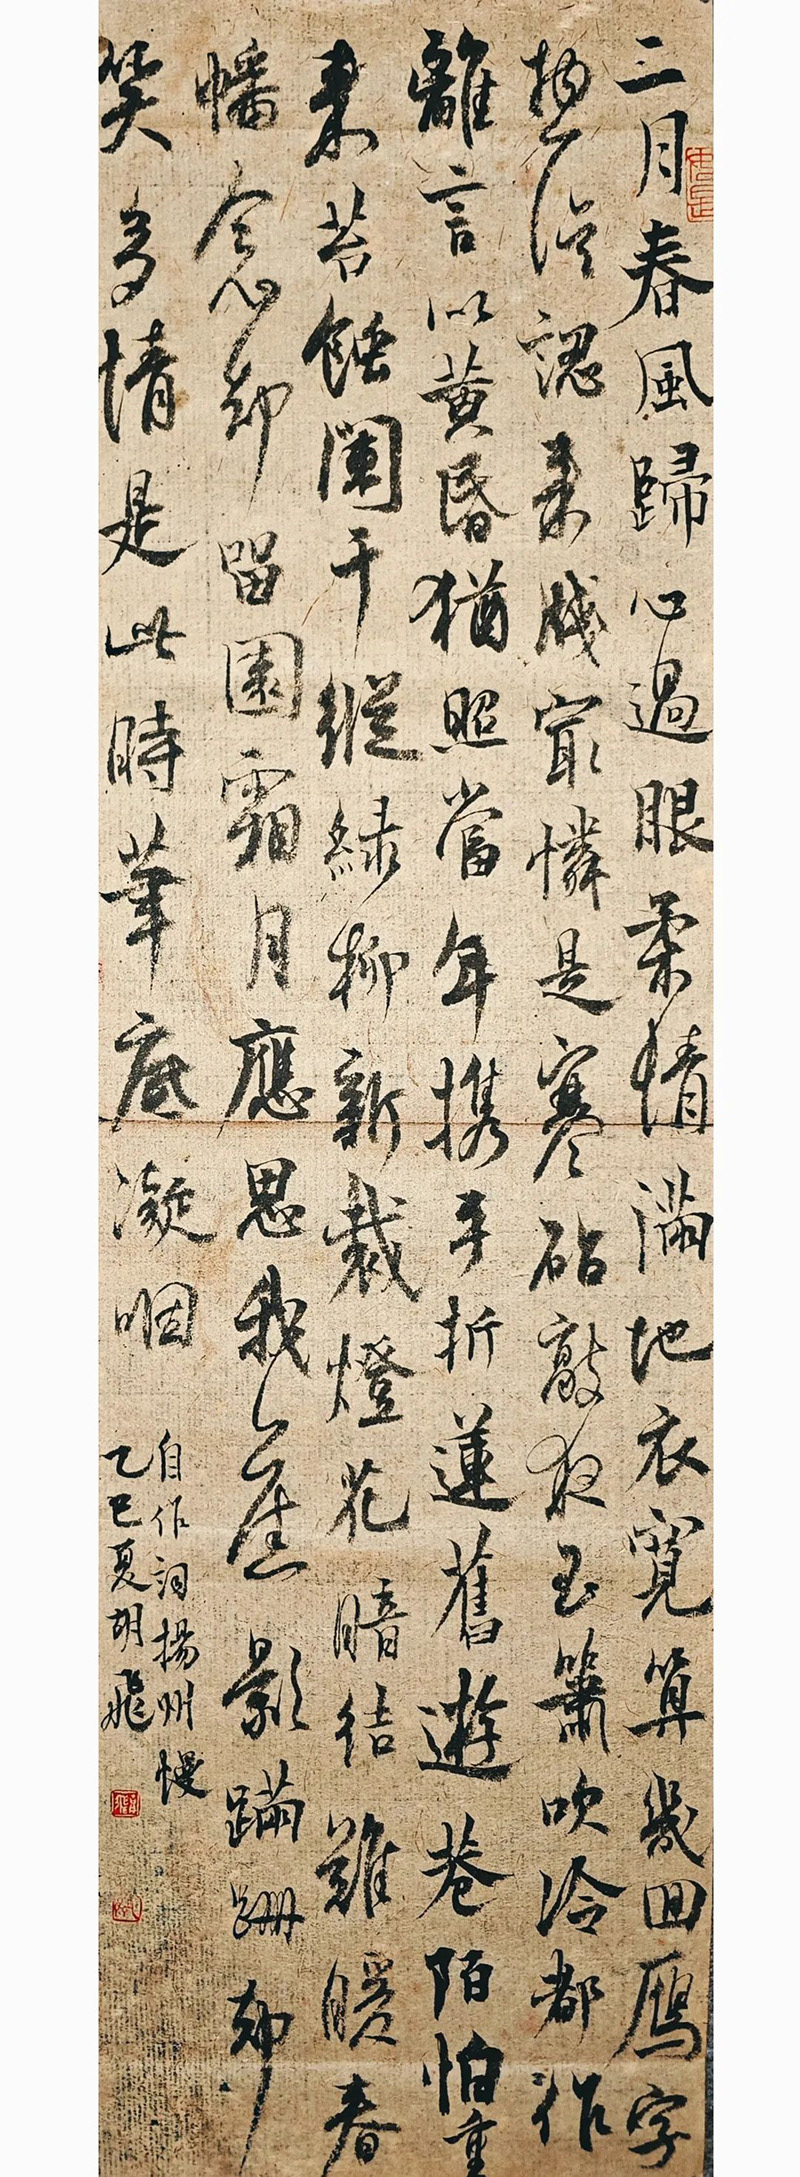 三月春風歸心過眼柔情滿地衣寬算幾回鴈字
認來牋最憐是寒砧敲夜玉簫吹冷都作
離言以黃昏猶照當年攜手折蓮舊遊巷陌怕重
來苔蝕闌干縱綠柳新裁燈花暗結難暖春
幡念卻留園霜月應思我影蹣跚卻
笑多情是此時筆底凝咽
自作詞揚州慢
乙巳夏胡飛